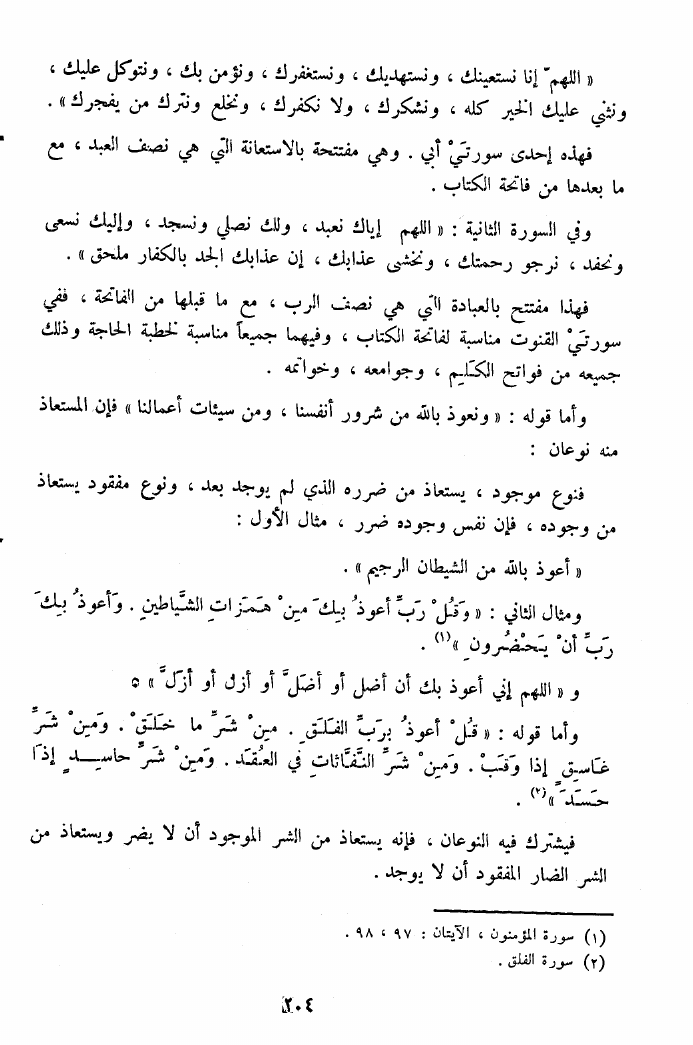 « اللهمّ إنا نستعينك ، ونستهديك ، ونستغفرك ، ونؤمن بك ، ونتوكل عليك ،
ونثني عليك الخير كله ، ونشكرك ، ولا نكفرك ، ونخلع ونترك من يفجرك » .
فهذه إحدى سورتَيْ أبي . وهي مفتتحة بالاستعانة التي هي نصف العبد ، مع
ما بعدها من فاتحة الكتاب .
وفي السورة الثانية : « اللهم إياك نعبد ، ولك نصلي ونسجد ، وإليك نسعى
ونحفد ، نرجو رحمتك ، ونخشى عذابك ، إن عذابك الجد بالكفار ملحق » .
فهذا مفتتح بالعبادة التي هي نصف الرب ، مع ما قبلها من الفاتحة ، ففي
سورتَيْ القنوت مناسبة لفاتحة الكتاب ، وفيهما جميعاً مناسبة لخطبة الحاجة وذلك
جميعه من فواتح الكَلِم ، وجوامعه ، وخواتمه .
وأما قوله : « ونعوذ بالله من شرور أنفسنا ، ومن سيئات أعمالنا » فإن المستعاذ
منه نوعان :
فنوع موجود ، يستعاذ من ضرره الذي لم يوجد بعد ، ونوع مفقود يستعاذ
من وجوده ، فإن نفس وجوده ضرر ، مثال الأول :
« أعوذ بالله من الشيطان الرجيم » .
ومثال الثاني : « وَقُلْ رَبِّ أعوذُ بِكَ مِنْ هَمَزَاتِ الشَّيَاطينِ . وَأعوذُ بِكَ
رَبِّ أنْ يَحْضُرونِ »(١) .
و « اللهم إني أعوذ بك أن أضل أو أضَلَّ أو أزل أو أزَلَّ » ٥
وأما قوله : « قُلْ أعوذُ بِرَبِّ الفَلَقِ . مِنْ شَرِّ ما خَلَقْ . وَمِنْ شَرِّ
غَاسِقٍ إذا وَقَبْ . وَمِنْ شَرِّ النَّفَّاثاتِ في العُقَد . وَمِنْ شَرِّ حاسِدٍ إذَا
حَسَدَ »(٢) .
فيشترك فيه النوعان ، فإنه يستعاذ من الشر الموجود أن لا يضر ويستعاذ من
الشر الضار المفقود أن لا يوجد .
(١) سورة المؤمنون ، الآيتان : ٩٧ ، ٩٨ .
(٢) سورة الفلق .
٢٠٤